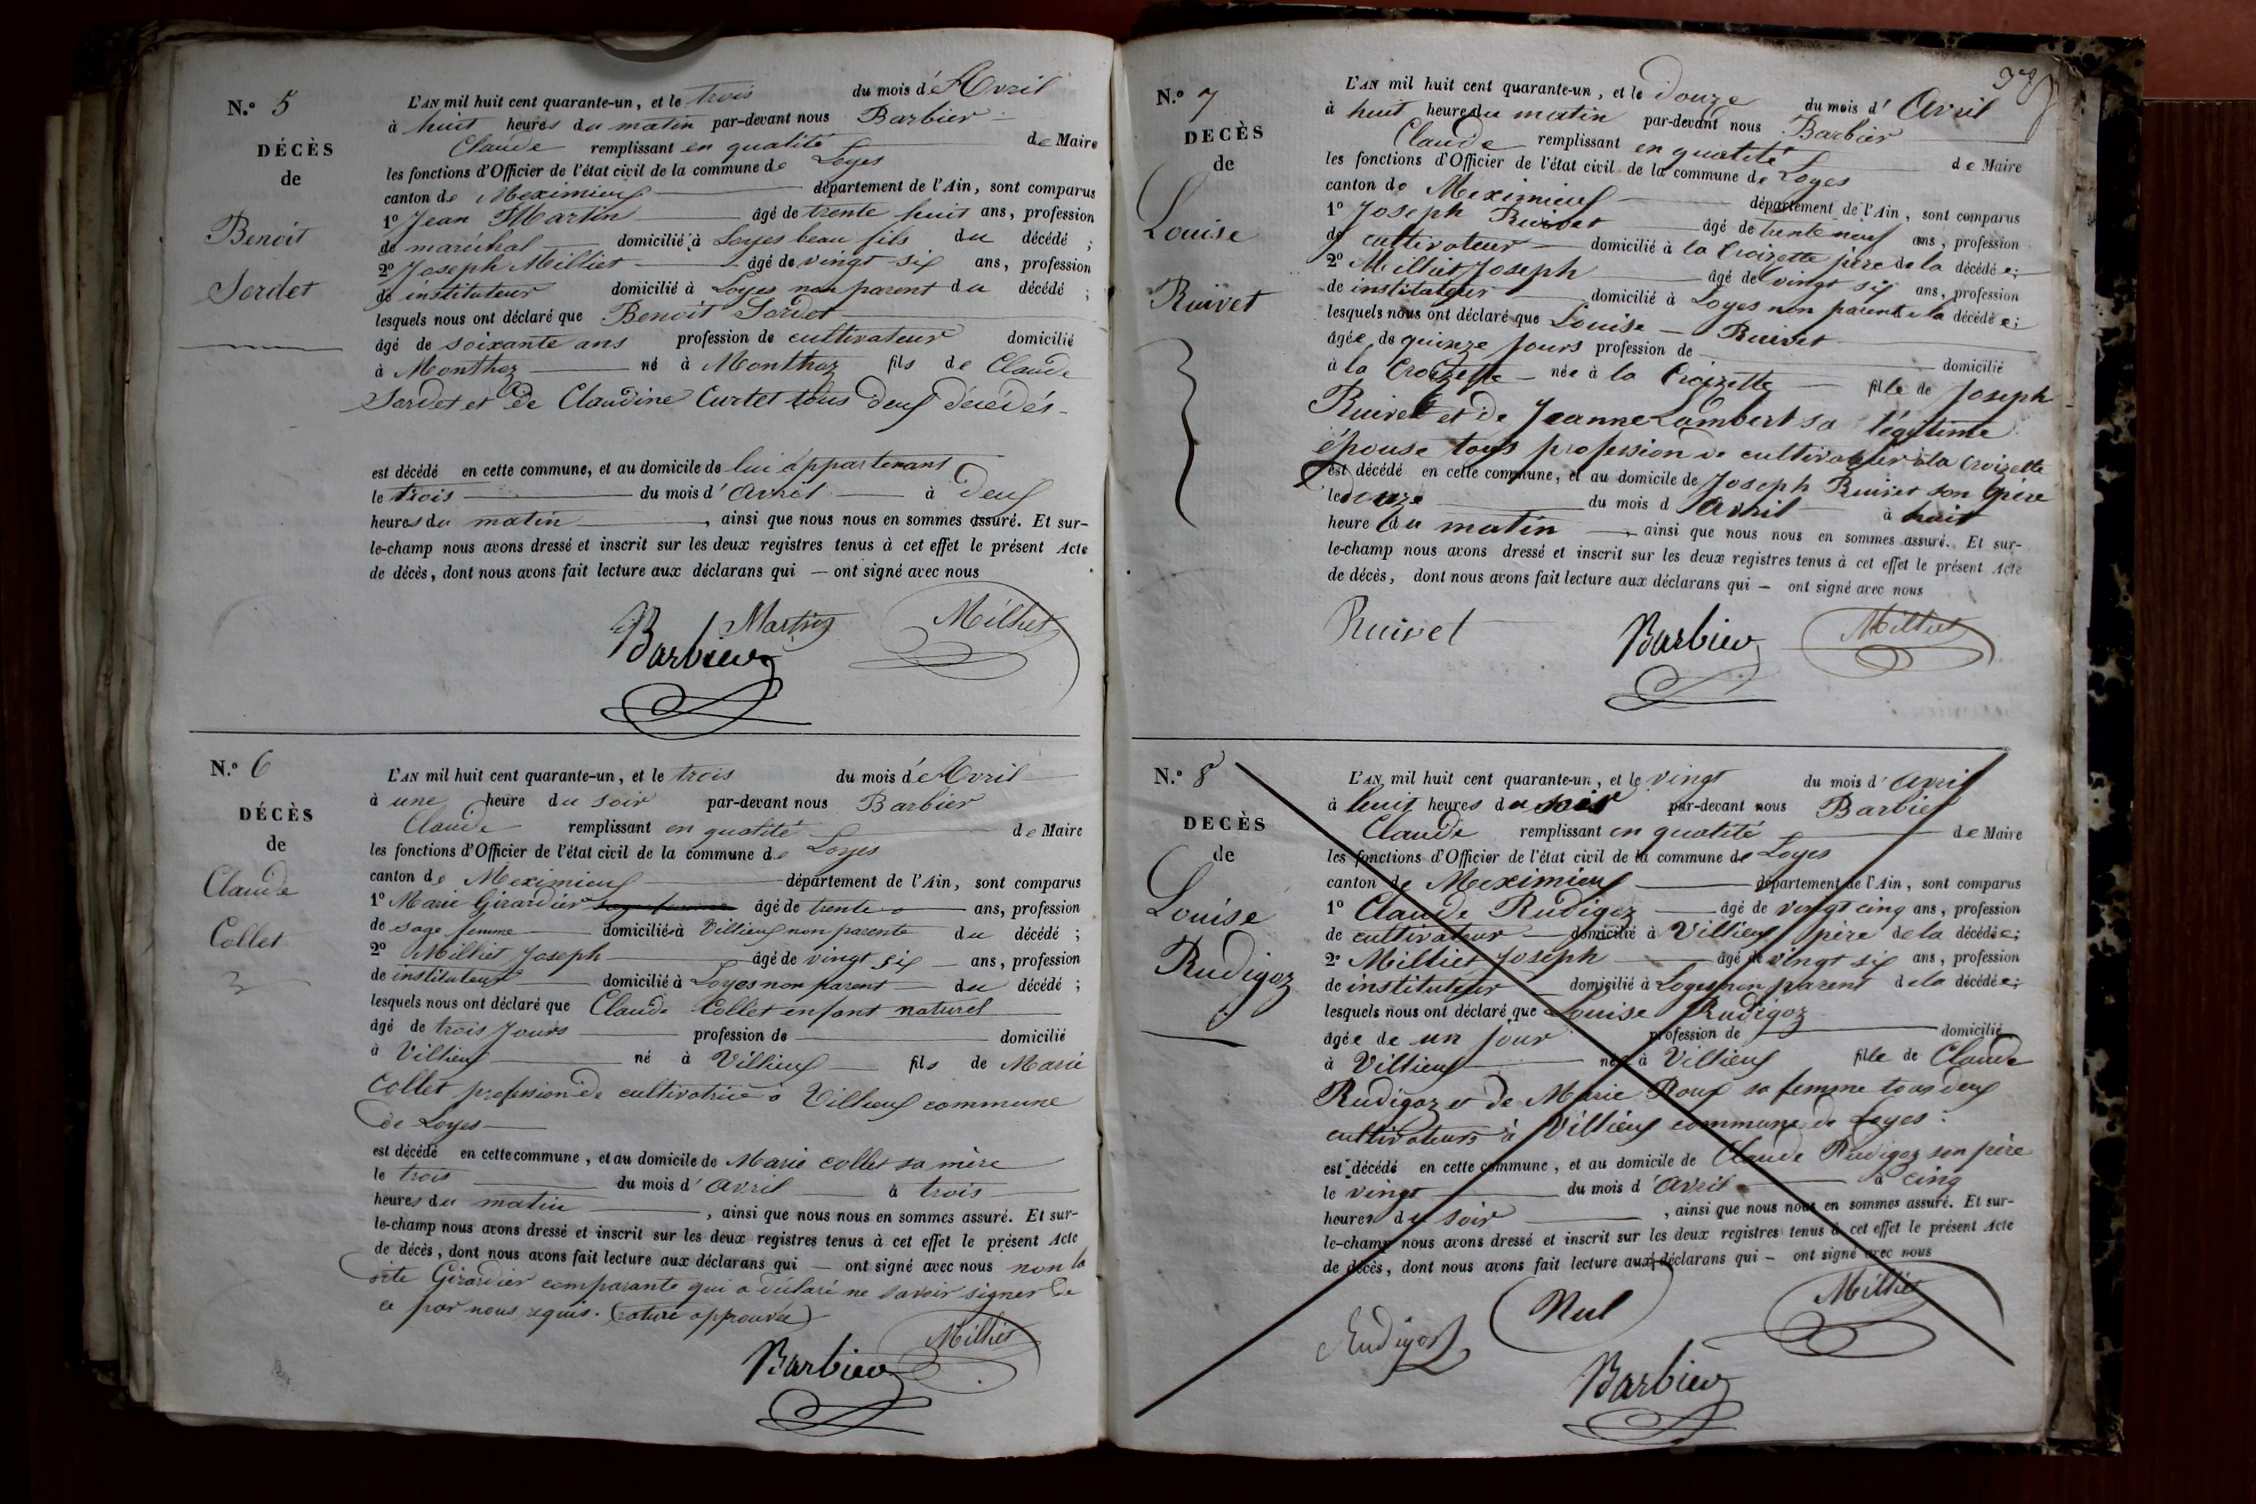 N.º 5
DÉCÈS
de
Benoit
Sordet
L'AN mil huit cent quarante-un, et le trois du mois d'Avril
à huit heures du matin par-devant nous Barbier
Claude remplissant en qualité de Maire
les fonctions d'Officier de l'état civil de la commune de Loyes
canton de Meximieux département de l'Ain, sont comparus
1º Jean Martin âgé de trente huit ans, profession
de maréchal domicilié à Loyes beau fils du décédé ;
2º Joseph Milliet âgé de vingt six ans, profession
de instituteur domicilié à Loyes non parent du décédé ;
lesquels nous ont déclaré que Benoit Sordet
âgé de soixante ans profession de cultivateur domicilié
à Monthoz né à Monthoz fils de Claude
Sordet et de Claudine Curtet tous deux décédés
est décédé en cette commune, et au domicile de lui appartenant
le trois du mois d'avril à deux
heures du matin, ainsi que nous nous en sommes assuré. Et sur-
le-champ nous avons dressé et inscrit sur les deux registres tenus à cet effet le présent Acte
de décès, dont nous avons fait lecture aux déclarans qui — ont signé avec nous
Martin Milliet
Barbier
N.º 6
DÉCÈS
de
Claude
Collet
L'AN mil huit cent quarante-un, et le trois du mois d'Avril
à une heure du soir par-devant nous Barbier
Claude remplissant en qualité de Maire
les fonctions d'Officier de l'état civil de la commune de Loyes
canton de Meximieux département de l'Ain, sont comparus
1º Marie Girardier âgé de trente ans, profession
de sage femme domicilié à Villieux non parente du décédé ;
2º Milliet Joseph âgé de vingt six ans, profession
de instituteur domicilié à Loyes non parent du décédé ;
lesquels nous ont déclaré que Claude Collet enfant naturel
âgé de trois jours profession de domicilié
à Villieux né à Villieux fils de Marie
Collet profession de cultivatrice à Villieux commune
de Loyes
est décédé en cette commune, et au domicile de Marie Collet sa mère
le trois du mois d'avril à trois
heures du matin, ainsi que nous nous en sommes assuré. Et sur-
le-champ nous avons dressé et inscrit sur les deux registres tenus à cet effet le présent Acte
de décès, dont nous avons fait lecture aux déclarans qui — ont signé avec nous non la
dite Girardier comparante qui a déclaré ne savoir signer de
ce par nous requis. (rature approuvée)
Milliet
Barbier
N.º 7
DECÈS
de
Louise
Ruivet
L'AN mil huit cent quarante-un, et le douze du mois d'Avril
à huit heures du matin par-devant nous Barbier
Claude remplissant en qualité de Maire
les fonctions d'Officier de l'état civil de la commune de Loyes
canton de Meximieux département de l'Ain, sont comparus
1º Joseph Ruivet âgé de trente neuf ans, profession
de cultivateur domicilié à la Croizette père de la décédée;
2º Milliet Joseph âgé de vingt six ans, profession
de instituteur domicilié à Loyes non parent de la décédée;
lesquels nous ont déclaré que Louise Ruivet
âgée de quinze jours profession de domicilié
à la Croizette née à la Croizette fille de Joseph
Ruivet et de Jeanne Lambert sa légitime
épouse tous profession de cultivateur à la Croizette
est décédé en cette commune, et au domicile de Joseph Ruivet son père
le douze du mois d'avril à huit
heure du matin, ainsi que nous nous en sommes assuré. Et sur-
le-champ nous avons dressé et inscrit sur les deux registres tenus à cet effet le présent Acte
de décès, dont nous avons fait lecture aux déclarans qui — ont signé avec nous
Ruivet Barbier Milliet
N.º 8
DECÈS
de
Louise
Rudigoz
L'AN mil huit cent quarante-un, et le vingt du mois d'avril
à huit heures du soir par-devant nous Barbier
Claude remplissant en qualité de Maire
les fonctions d'Officier de l'état civil de la commune de Loyes
canton de Meximieux département de l'Ain, sont comparus
1º Claude Rudigoz âgé de vingt cinq ans, profession
de cultivateur domicilié à Villieux père de la décédée;
2º Milliet Joseph âgé de vingt six ans, profession
de instituteur domicilié à Loyes non parent de la décédée;
lesquels nous ont déclaré que Louise Rudigoz
âgée de un jour profession de domicilié
à Villieux née à Villieux fille de Claude
Rudigoz et de Marie Roux sa femme tous deux
cultivateurs à Villieux commune de Loyes
est décédé en cette commune, et au domicile de Claude Rudigoz son père
le vingt du mois d'avril à cinq
heures du soir, ainsi que nous nous en sommes assuré. Et sur-
le-champ nous avons dressé et inscrit sur les deux registres tenus à cet effet le présent Acte
de décès, dont nous avons fait lecture aux déclarans qui — ont signé avec nous
Rudigoz Nul Milliet
Barbier